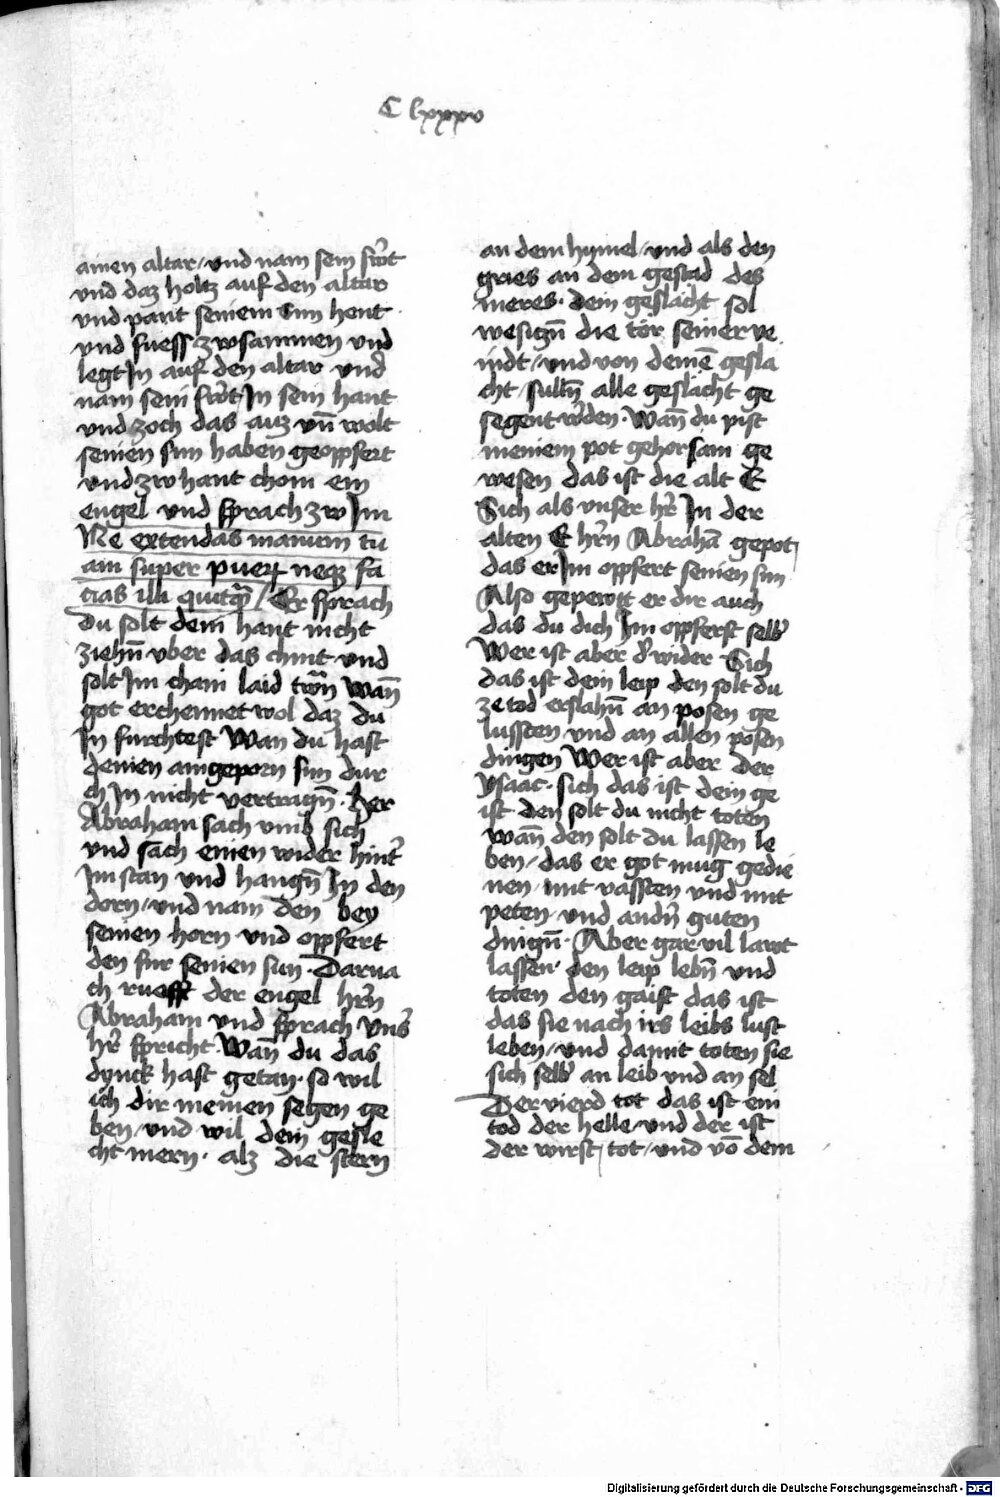 C lxxxv
ainen altar / vnd nam sein swͤrt
vnd daz holtz auf den altar
vnd pant seinem Sun hent
vnd fuess zwsammen vnd
legt In auf den altar vnd
nam sein swͤrt In sein hant
vnd zoch das auz vn̄ wolt
seinen sun haben geoppfert
vnd zw hant chom ein
engel vnd sprach zw Im
Ne extendas manum tu
am super pueꝝ neqꝫ fa
cias illi quicqͣȝ / Er sprach
Du solt dein hant nicht
ziehn̄ vber das chint vnd
solt Im chain laid twn̄ wan̄
got erchennet wol daz du
In furchtest Wan du hast
deinen aingeporn sun dur
ch In nicht vertragn̄ . Her
Abraham sach vmb sich
vnd sach einen wider hintʼ
Im stan vnd hangn̄ In den
dorn / vnd nam den bey
seinen horn vnd oppfert
den fur seinen sun . Darna
ch ruefft der engel hrn̄
Abraham vnd sprach Vnsʼ
hrʼ spricht . Wan̄ du das
dynck hast getan . so wil
ich dir meinen segen ge
ben / vnd wil dein gesle
cht mern . alz die stern
an dem hymel / vnd als den
gries an dem gestad des
meres . dein geslächt sol
wesiczn̄ die tör seiner ve
indt / vnd von deinē gesla
cht / sulln̄ alle geslächt ge
segent wʼden . Wan̄ du pist
meinem pot gehorsam ge
wesen das ist die alt E
Sich als vnser hrʼ In der
alten E hrn̄ Abrahā gepot
das er Im oppfert seinen sun
Also gepewtt er dir auch
das du dich Im oppferst selbʼ
Wer ist aber dʼ wider Sich
das ist dein leip den solt du
ze tod erslahn̄ an posen ge
lussten vnd an allen posen
dingen Wer ist aber der
Ysaac . sich das ist dein ge
ist den solt du nicht toten
wan̄ den solt du lassen le
ben / das er got mug gedie
nen / mit vassten vnd mit
peten / vnd andn̄ guten
dingn̄ . Aber gar vil lawt
lassen den leip lebn̄ vnd
toten den gaist das ist
das sie nach irs leibs lust
leben / vnd damit toten sie
sich selbʼ an leib vnd an sel
Der vierd tot das ist ein
tod der helle / vnd der ist
der wirst tot / vnd vō dem
Digitalisierung gefördert durch die Deutsche Forschungsgemeinschaft - DFG